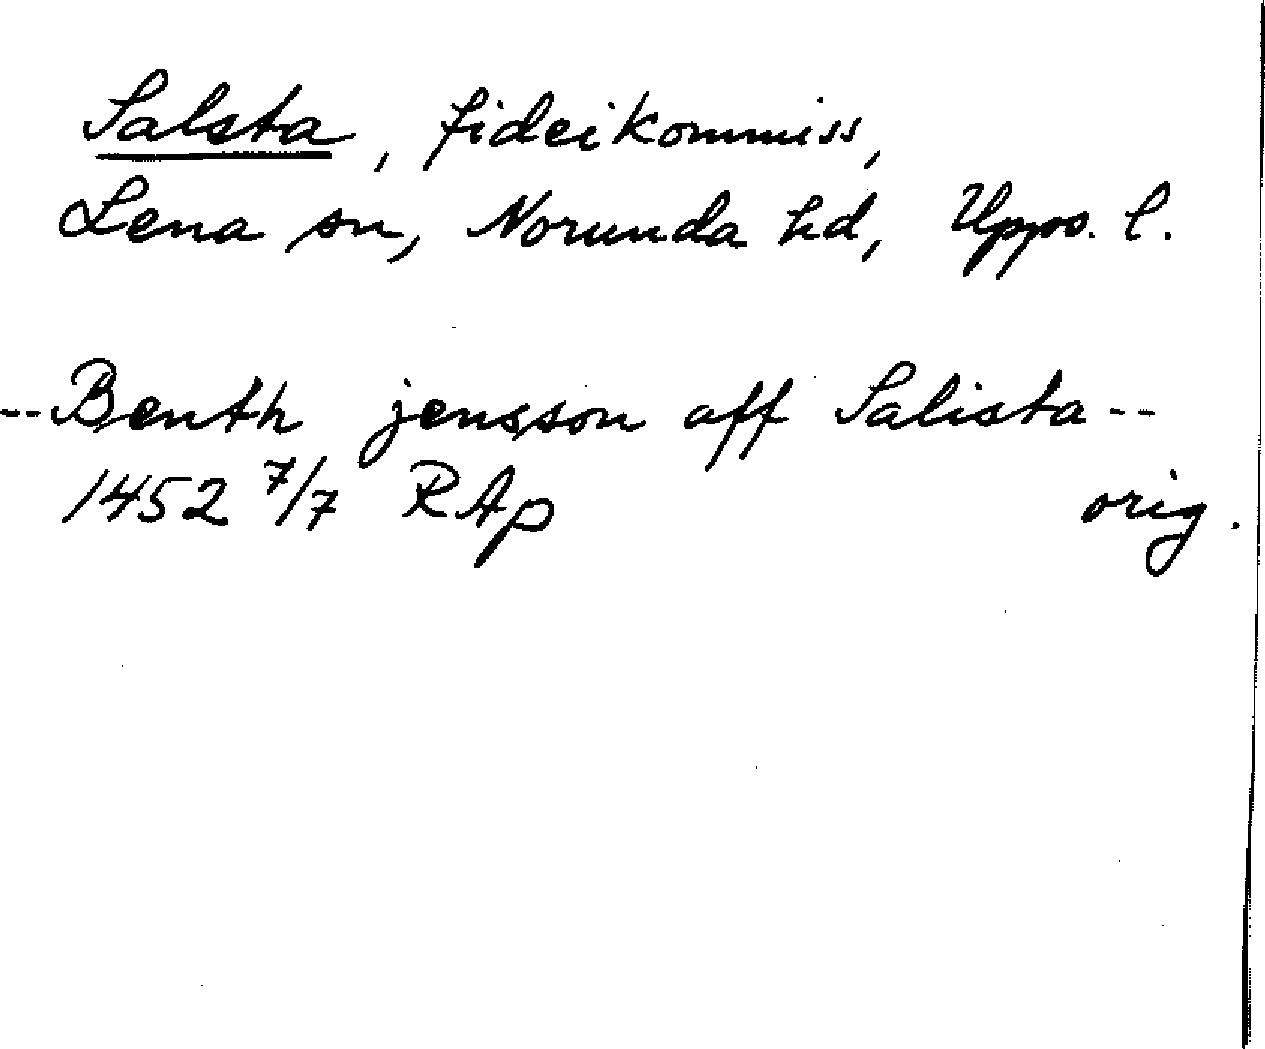 Salsta, fideikommiss,
Lena sn, Norunda hd, Upps. l.
--Benth jensson aff Salista--
1452 7/7 RAp orig.